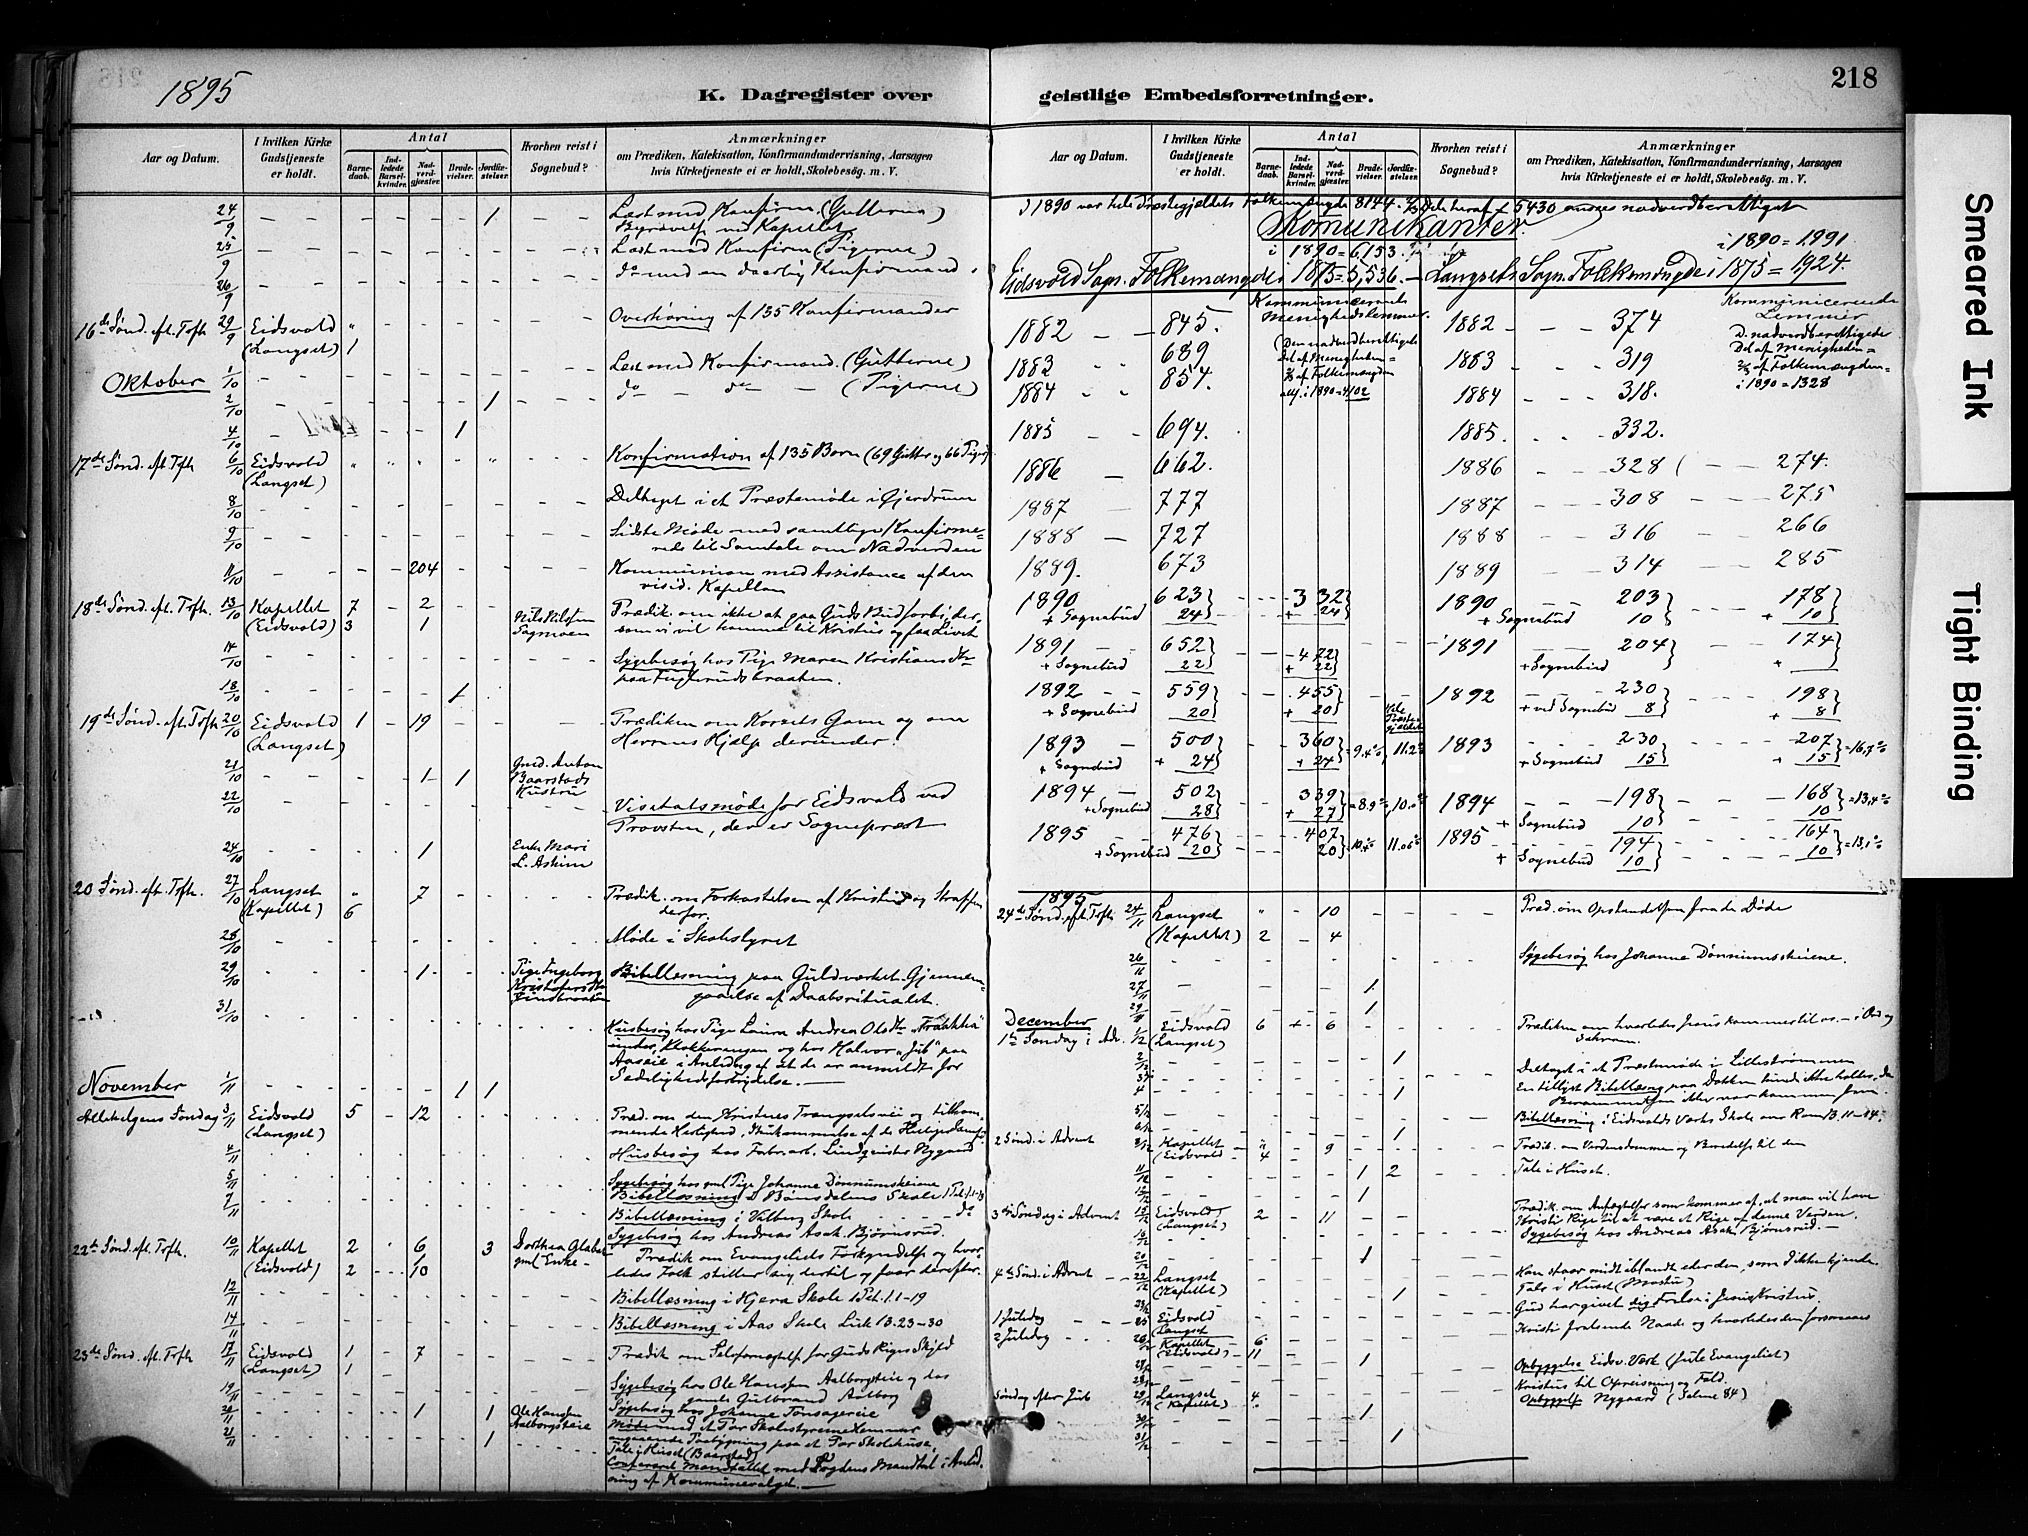 1895
218
K. Dagregister over geistlige Embedsforretninger.
Aar og Datum.
I hvilken Kirke Gudstjeneste er holdt.
Antal
Barnedaab.
Indledede Barselkvinder.
Nadverdgjæster.
Brudevielser.
Jordfæstelser.
Hvorhen reist i Sognebud?
Anmærkninger
om Prædiken, Katekisation, Konfirmandundervisning, Aarsagen
hvis Kirketjeneste ei er holdt, Skolebesøg. m. V.
24/9 - - - - - 1 Læst med Konfirm. (Gutterne)
25/9 - - Læst med Konfirm (Pigerne)
26/9
16de Sønd. eft. Trfh. 29/9 Eidsvold Overhøring af 135 Konfirmander
(Langset) 1
Oktober 1/10 Læst med Konfirmand. (Gutterne)
2/10 1 do do (Pigerne)
4/10 1
17de Sønd. eft. Trfh 6/10 Eidsvold Konfirmation af 135 Børn (69 Gutter og 66 Piger)
(Langset)
8/10 Deltaget i et Præstemøde i Gjerdrum
9/10 Sidste Møde med samtlige Konfirmerede til Samtale om Nadverden
11/10 204 Kommunion med Assistance af den
resid. Kapellan
18de Sønd. eft. Trfh. 13/10 Kapellet 7 - 2 Nils Nilsen Prædik. om ikke at gaa Guds Bud forbi, der-
(Eidsvold) 3 1 Sagmoen som vi vil komme til Kristus og faa Livet
14/10 Sygebesøg hos Pige Maren Kristiansdtr
paa Fuglerudsbraaten.
18/10 1
19de Sønd. eft. Trfh 20/10 Eidsvold 1 - 19 Prædiken om Korsets Gavn og om
(Langset) Herrens Hjælp derunder.
21/10 1 1 Gmd. Anton Baarstads Hustru
22/10 Visitatsmøde for Eidsvold ved
Provsten, der er Sognepræst
24/10 1 Enke Mari L. Askim
20 Sønd. eft. Trfh. 27/10 Langset 7 Prædik. om Forkastelsen af Kristus og Straffen
(Kapellet) 6 derfor.
28/10 Møde i Skolestyret
29/10 1 Pige Ingeborg Bibellæsning paa Guldverket. Gjennem-
gaaelse af Daabsritualet.
31/10 Husbesøg hos Pige Laura Andrea Olsdtr
under Klokkerengen og hos Halvor "Jub" paa
Aaseie i Anledning af at de er anmeldt for
Sædelighedsforbrydelse.
November 1/11 1 1
Allehelgens Søndag 3/11 Eidsvold 5 - 12 Præd. om den Kristnes Trængselsvei og tilkom-
(Langset) mende Herlighed,
4/11 Husbesøg hos Fabr.arb. Lindqvister Nygaard
5/11 Sygebesøg hos gml Pige Johanne Dønnumseiene
7/11 Bibellæsning i Bønsdalens Skole 1 Pet. 1.1-13
Bibellæsning i Vilberg Skole do
Sygebesøg hos Andreas Asak. Bjørnsrud.
22de Sønd. eft. Trfh. 10/11 Kapellet 2 6 3 Dorthea Prædik om Evangeliets Forkyndelse og hvor-
(Eidsvold) 2 10 gml Enke ledes Folk stiller sig dertil og faar derefter.
12/11 Bibellæsning i Hjera Skole 1 Pet. 1.1-19
14/11 Bibellæsning i Aas Skole Luk 13.23-30
23de Sønd. eft. Trfh 17/11 Eidsvold 1 - 7 Prædik om Selvfornegtelse for Guds Riges Skyld
(Langset) 1
19/11 Sygebesøg hos Ole Hansen Aalborgeie og hos
gamle Gulbrand Aalborg
20/11 1 1 Ole Hansen Aalborgseie Sygebesøg hos Johanne Tønsagereie
21/11 1 Møde med et Par Skolestyremedlemmer
angaaende Paabygning paa et Par Skolehuse.
Tale i Huset (Baarstad)
Confereret Mandtallet med Fogdens Mandtal i Anled-
ning af Kommunevalget.
I 1890 var hele Præstegjældets Folkemængde 8144. 2/3 Del heraf = 5430 ansees nadverdberettiget
Komunikanter
i 1890 = 6,153. i 1890 = 1.991
Eidsvold Sogn. Folkemængde i 1875 = 5,536. - Langsets Sogn. Folkemængde i 1875 = 1924.
Kommunicerende Menighedslemmer.
(Den nadverdberettigede Del af Menigheden = 2/3 af Folkemængden alts. i 1890 = 4102
Kommunicerende Lemmer
D. nadverdberettigede Del af Menigheden = 2/3 af Folkemængden = i 1890 = 1328
1882 - - 845. 1882 - - 374
1883 689 1883 319
1884 857. 1884 - - - 318.
1885 - - 694. 1885. 332.
1886 - 662. 1886 - - 328 ( - - 274.
1887 - 777 1887 - - 308 - - - 275
1888 - 727 1888 - - 316 - - 266
1889. - 673 1889 - - 314 - - 285
1890 623 332 1890 203 178
+ Sognebud 24 + 24 + Sognebud 10 + 10
1891 - - 652 472 1891 204 174
+ Sognebud 22 + 22 + Sognebud +
1892 - - 559 455 1892 230 198
+ Sognebud 20 + 20 + ved Sognebud 8 + 8
Hele Præstegjældet
1893 - 500 360 = 9.4% 11.2% 1893 230 207 = 16,7%
+ Sognebud + 24 + 24 + Sognebud 15 + 15
1894 - 502 339 = 8.9% 10.0% 1894 198 168 = 13,4%
+ Sognebud 28 + 27 + Sognebud 10 10
1895 - - 476 407 11.06% 1895 194 164 = 13,1%
+ Sognebud 20 20 + Sognebud 10 10
1895
24de Sønd. eft. Trfh 24/11 Langset - 10 Præd. om Opstandelsen fra de Døde
(Kapellet) 2 - 4
26/11 Sygebesøg hos Johanne Dønnumseiene.
27/11 1.
29/11 1
December
1ste Søndag i Adv. 1/12 Eidsvold 6 + 6 Prædiken om hvorledes Jesus kommer til os - i Ord og
(Langset) Sakram.
2/12 1 Deltaget i et Præstemøde i Lillestrømmen
3/12 En tillyst Bibellæsng paa Dokken kunde ikke holdes, da
4 1 Berammelsen ikke var kommen frem.
5/12 Bibellæsning i Eidsvolds Værks Skole over Rom 13. 11-14.
6/12 1
2 Sønd. i Advent 8/12 Kapellet 9 Prædik. om Verdensdommen og Beredelse til den
(Eidsvold 4
11/12 1 2 Tale i Huset.
13/12 1
3die Søndag i Advent 15/12 Eidsvold 2 - 11 Prædik. om Anfægtelser som kommer af, at man vil have
(Langset) Kristi Rige til at være et Rige af denne Verden.
16/12 Sygebesøg hos Andreas Asak. Bjørnsrud. -
20/12 1
4de Sønd. i Advent 22/12 Langset Han staar midt iblandt eder den, som I ikke kjende.
(Kapellet) Tale i Huset (Mostue)
23/12 1 Gud har givet dig Frelse i Jesus Kristus.
1 Juledag 25 Eidsvold
Langset
2 Juledag 26/12 Kapellet 6
(Eidsvold) - 11
28/12 1 Opbyggelse Eidsv. Værk (Jule Evangeliet)
Søndag efter Jul 29/12 Langset 4 Kristus til Opreisning og Fald.
(Kapellet) Opbyggelse Nygaard (Salme 84)
30/12 1
31/12 1
Smeared Ink
Tight Binding